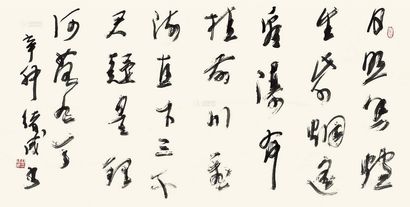 日照香爐
生紫烟遥
看瀑布
挂前川飛
流直下三千
尺疑是銀
河落九天
辛卯